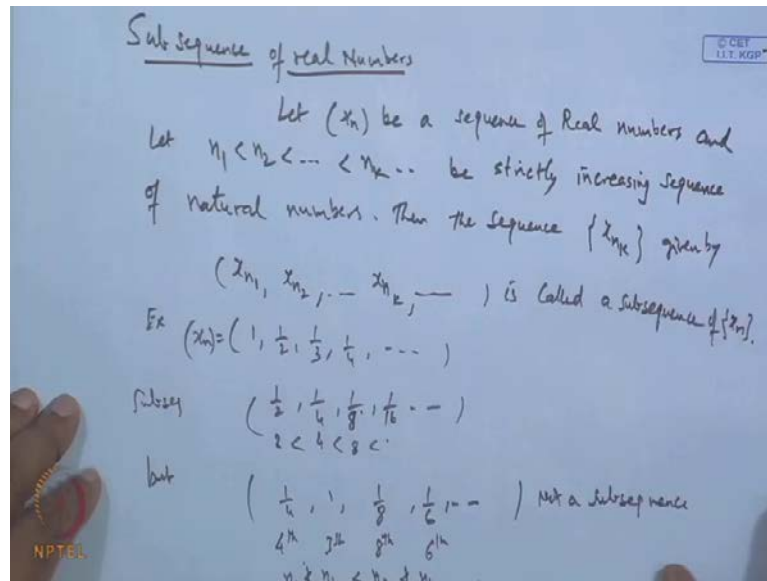 Subsequence of real Numbers
© CET
I.I.T. KGP
Let (xn) be a sequence of Real numbers and
Let n1 < n2 < ... < nk .. be strictly increasing sequence
of natural numbers. Then the sequence {xnk} given by
(xn1, xn2, ... xnk, — ) is called a subsequence of {xn}.
Ex (xn) = ( 1, 1/2, 1/3, 1/4, ---- )
Subseq ( 1/2, 1/4, 1/8, 1/16 . -- )
2 < 4 < 8 < .
but ( 1/4, 1, 1/8, 1/6, -- ) Not a subsequence
4th 3th 8th 6th
NPTEL